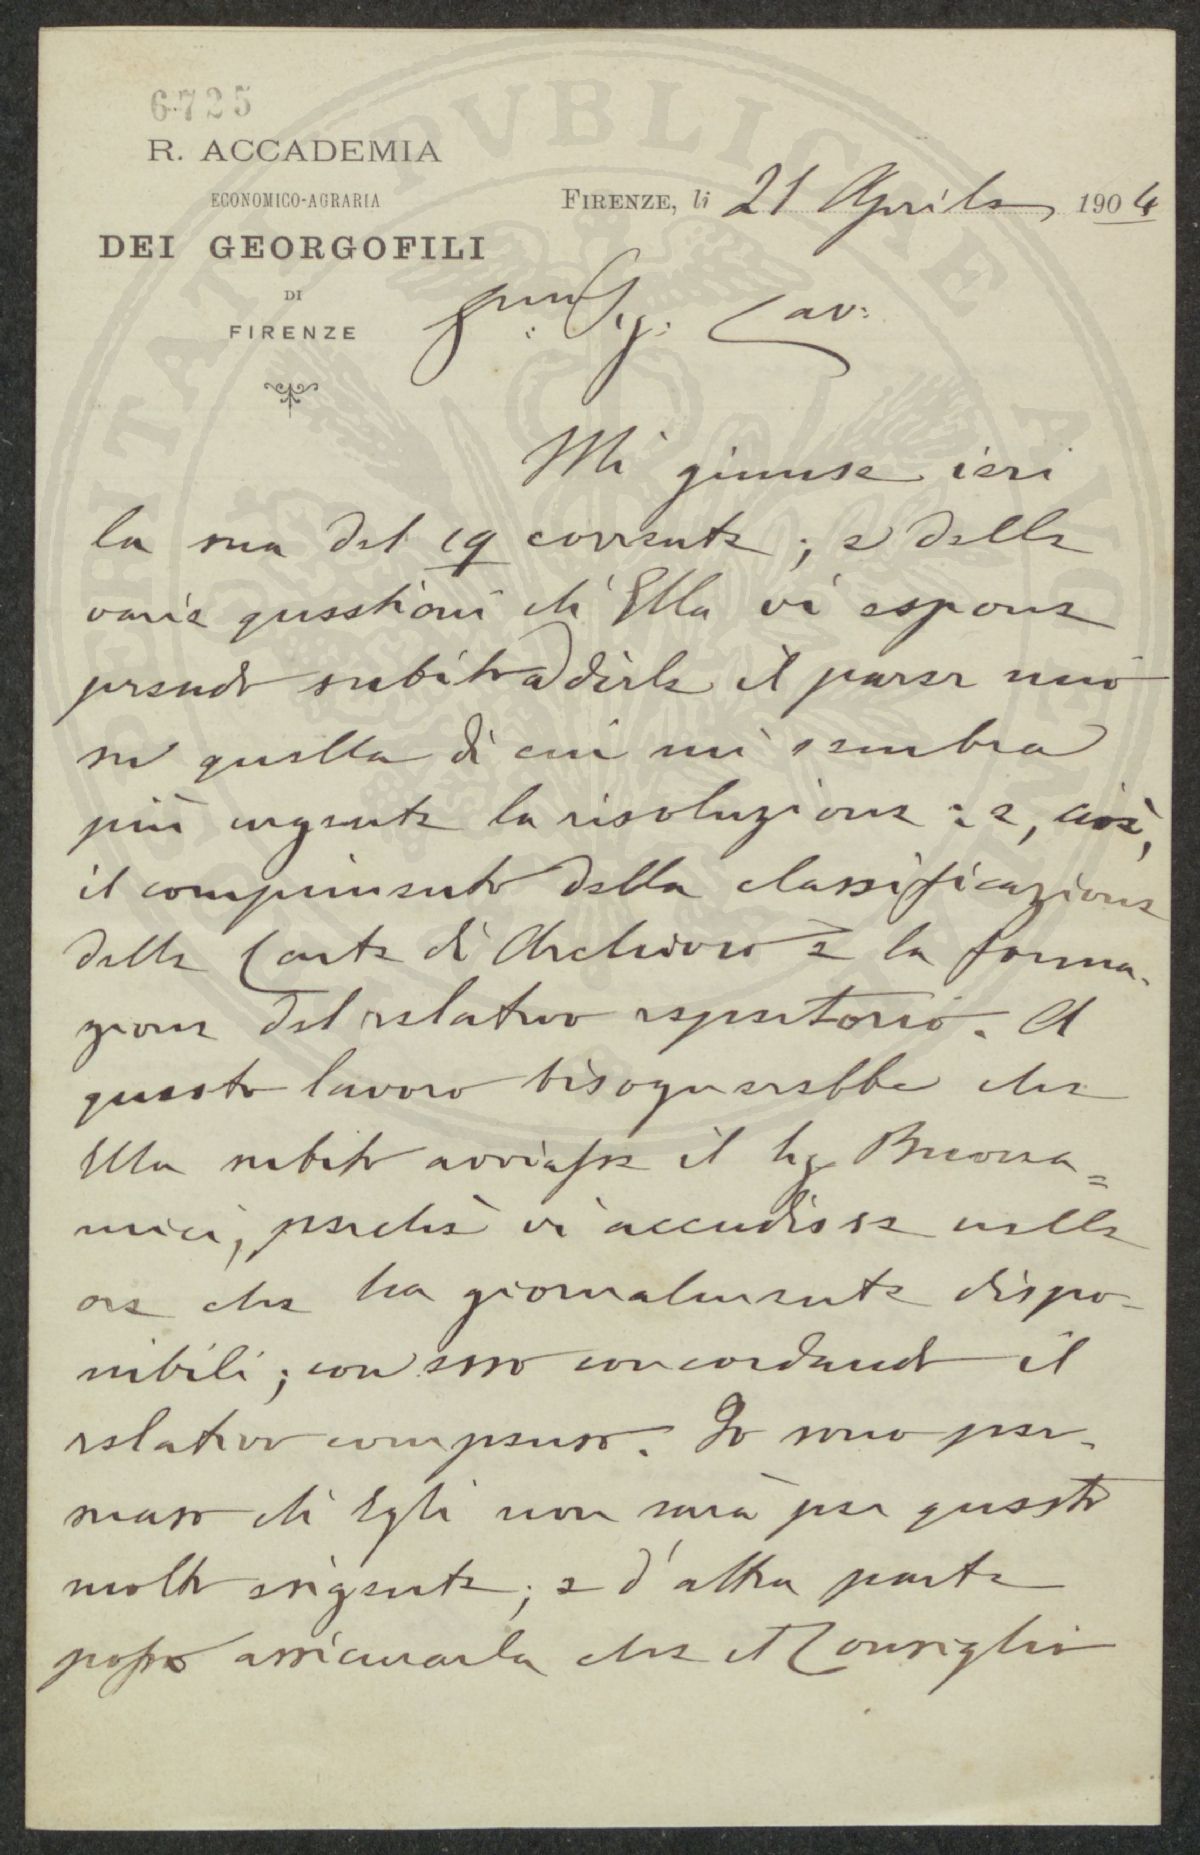 6725
R. ACCADEMIA
ECONOMICO-AGRARIA
DEI GEORGOFILI
DI
FIRENZE
FIRENZE, li 21 Aprile 1904
Sig: Cav:
Mi giunse ieri
la sua del 19 corrente; e delle
varie questioni ch'Ella vi espone
prendo subito a dirle il parer mio
su quella di cui mi sembra
più urgente la risoluzione: e, cioè,
il compimento della classificazione
delle Carte di Archivio e la forma-
zione del relativo repertorio. A
questo lavoro bisognerebbe che
Ella subito avviasse il Sig Buona=
mici, perchè vi accudisse nelle
ore che ha giornalmente dispo-
nibili; con esso concordando il
relativo compenso. Io sono per-
suaso ch'Egli non sarà per questo
molto esigente; e d'altra parte
posso assicurarla che il Consiglio
PVBLICAE